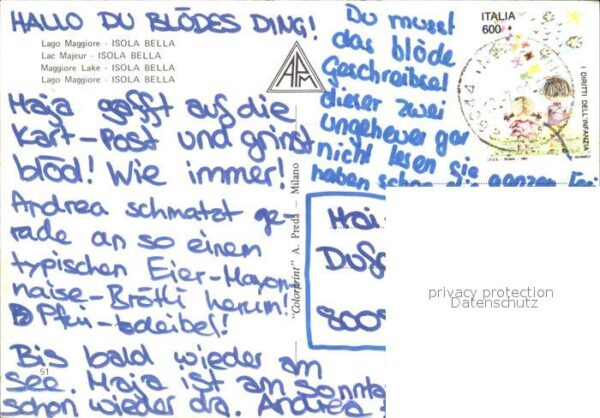 HALLO DU BLÖDES DING!
Lago Maggiore - ISOLA BELLA
Lac Majeur - ISOLA BELLA
Maggiore Lake - ISOLA BELLA
Lago Maggiore - ISOLA BELLA
Maja gafft auf die
Kart-Post und grinst
blöd! Wie immer!
Andrea schmatzt ge-
rade an so einem
typischen Eier-Mayon-
naise-Brötli herum!
Pfui-deibel!
Bis bald wieder am
See. Maja ist am Sonntag
schon wieder dra. Andrea
51
APM
"Colorprint" A. Preda - Milano
Du musst
das blöde
Geschreibsel
dieser zwei
ungeheuer gar
nicht lesen sie
haben schon die ganzen
ITALIA
600
I DIRITTI DELL'INFANZIA
I.P.Z.S. - ROMA - 1991
Mai
Duf
800
privacy protection
Datenschutz